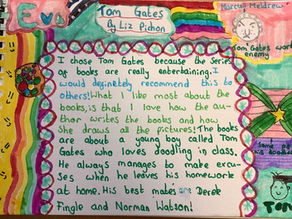 Eva
Tom Gates
By Liz Pichon
Marcus Meldrew
Tom Gates worst
enemy
I chose Tom Gates because the Series
of books are really entertaining. I
would definetely recommend this to
others! What I like most about the
books, is that I love how the au-
thor writes the books and how
She draws all the pictures! The books
are about a young boy called Tom
Gates who loves doodling in class.
He always manages to make excu-
ses when he leaves his homework
at home. His best mates are Derek
Fingle and Norman Watson!
Tom